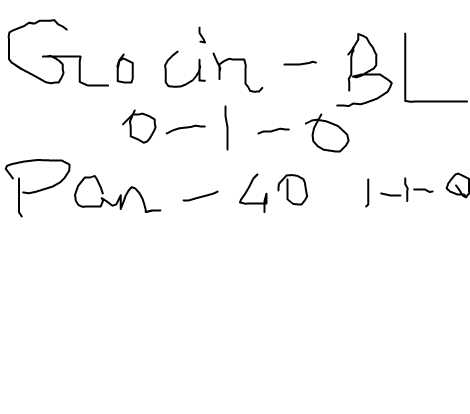 Grocin - BL
0-1-0
Pan - 40 1-1-0